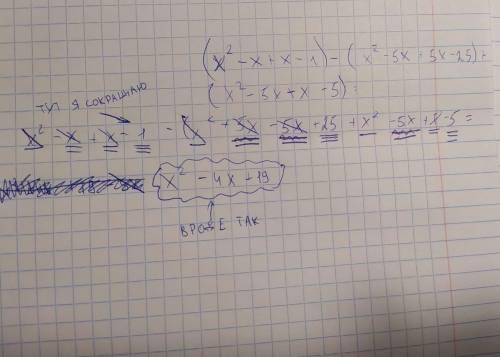 (x² - x + x - 1) - (x² - 5x + 5x - 25) +
(x² - 5x + x - 5) =
ТУТ Я СОКРАЩАЮ
x² - x + x - 1 - x² + 5x - 5x - 25 + x² - 5x + x - 5 =
x² - 4x + 19
ВРОДЕ ТАК